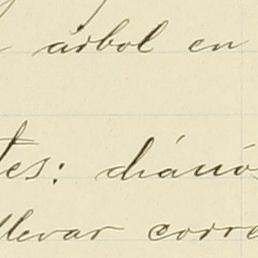 árbol en
tes: diários
llevar corre